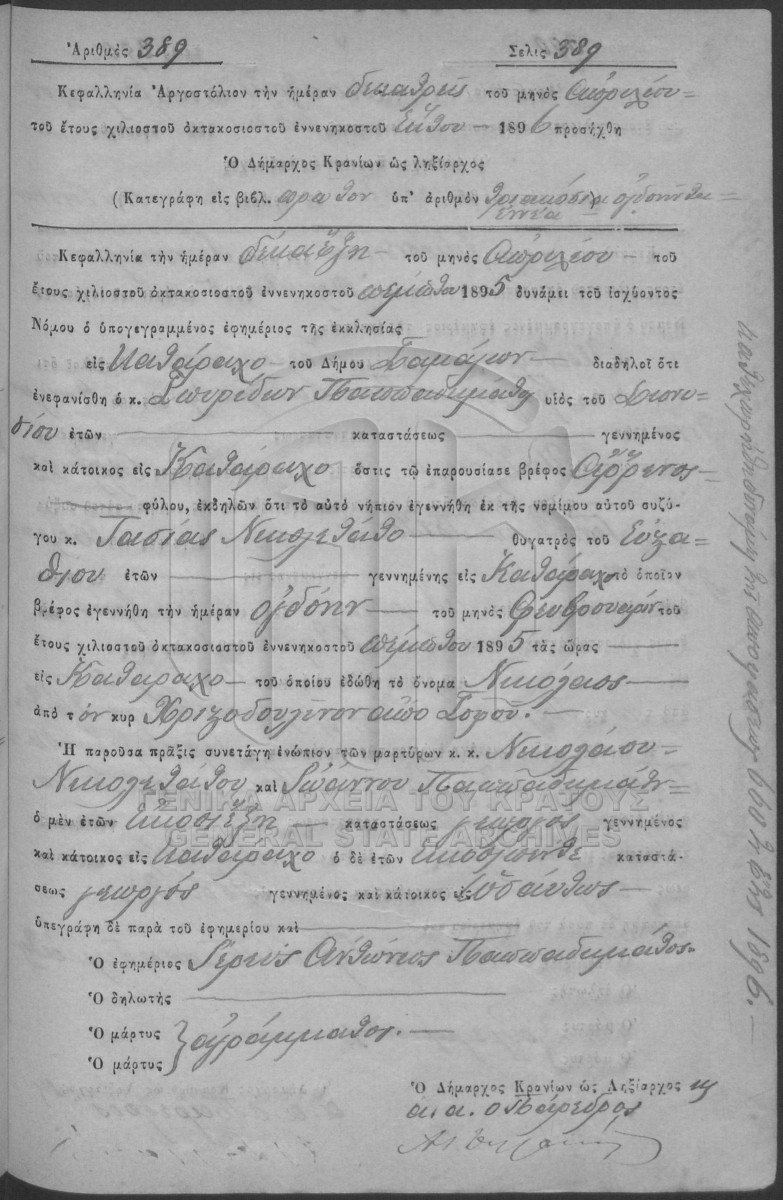 Ἀριθμὸς 389 Σελις 389
Κεφαλληνία Ἀργοστόλιον τὴν ἡμέραν δεκατρεῖς τοῦ μηνὸς Ἀπριλίου
τοῦ ἔτους χιλιοστοῦ ὀκτακοσιοστοῦ ἐννενηκοστοῦ ἕκτου 1896 προσήχθη
Ὁ Δήμαρχος Κρανίων ὡς ληξίαρχος
(Κατεγράφη εἰς βιβλ. πρῶτον ὑπ' ἀριθμὸν τριακόσια ὀγδοῆντα
ἐννέα
Κεφαλληνία τὴν ἡμέραν δέκα ἕξη τοῦ μηνὸς Ἀπριλίου τοῦ
ἔτους χιλιοστοῦ ὀκτακοσιοστοῦ ἐννενηκοστοῦ πέμπτου 1895 δυνάμει τοῦ ἰσχύοντος
Νόμου ὁ ὑπογεγραμμένος ἐφημέριος τῆς ἐκκλησίας
εἰς Κατάραχο τοῦ Δήμου Σαμαίων διαδηλοῖ ὅτι
ἐνεφανίσθη ὁ κ. Σπυρίδων Παππαδημάτος υἱὸς τοῦ Διονυ
σίου ἐτῶν καταστάσεως γεννημένος
καὶ κάτοικος εἰς Κατάραχο ὅστις τῷ ἐπαρουσίασε βρέφος ἄρρενος
φύλου, ἐκδηλῶν ὅτι τὸ αὐτὸ νήπιον ἐγεννήθη ἐκ τῆς νομίμου αὐτοῦ συζύ-
γου κ. Τασίας Νικολετάτο θυγατρὸς τοῦ Εὐστα
θίου ἐτῶν γεννημένης εἰς Κατάραχο τὸ ὁποῖον
βρέφος ἐγεννήθη τὴν ἡμέραν ὀγδόην τοῦ μηνὸς Φευβρουαρίου τοῦ
ἔτους χιλιοστοῦ ὀκτακοσιοστοῦ ἐννενηκοστοῦ πέμπτου 1895 τὰς ὥρας
εἰς Κατάραχο τοῦ ὁποίου ἐδώθη τὸ ὄνομα Νικόλαος
ἀπὸ τόν κυρ Χριζοδουλῖνον ἀπο
Ἡ παροῦσα πρᾶξις συνετάγη ἐνώπιον τῶν μαρτύρων κ. κ. Νικολάου
Νικολετάτου καὶ Ἰωάννου Παππαδημάτου
ΓΕΝΙΚΑ ΑΡΧΕΙΑ ΤΟΥ ΚΡΑΤΟΥΣ
ὁ μὲν ἐτῶν εἴκοσι ἕξη καταστάσεως γεωργός γεννημένος
GENERAL STATE ARCHIVES
καὶ κάτοικος εἰς Κατάραχο ὁ δὲ ἐτῶν εἴκοσι πέντε καταστά-
σεως γεωργός γεννημένος καὶ κάτοικος εἰς ὡσαύτως
ὑπεγράφη δὲ παρὰ τοῦ ἐφημερίου καὶ
Ὁ ἐφημέριος Ἱερεύς Ἀντώνιος Παππαδημάτος
Ὁ δηλωτὴς
Ὁ μάρτυς
Ὁ μάρτυς } ἀγράμματος.
Ὁ Δήμαρχος Κρανίων ὡς Ληξίαρχος
ἀ. ἀ. ὁ Πάρεδρος
Κατεχωρήθη δυνάμει τῆς 660 1896.